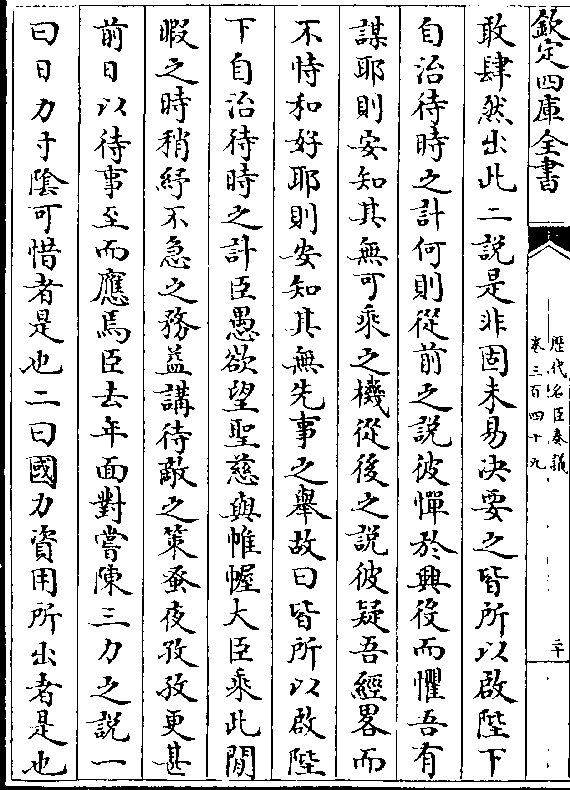 欽定四庫全書
歴代名臣奏議
卷三百四十九
二十
敢肆然出此二說是非固未易決要之皆所以啟陛下
自治待時之計何則從前之說彼憚於興役而懼吾有
謀耶則安知其無可乘之機從後之說彼疑吾經畧而
不恃和好耶則安知其無先事之舉故曰皆所以啟陛
下自治待時之計臣愚欲望聖慈與帷幄大臣乘此閒
暇之時稍紓不急之務益講待敵之策蚤夜孜孜更甚
前日以待事至而應焉臣去年面對嘗陳三力之説一
曰日力寸陰可惜者是也二曰國力資用所出者是也